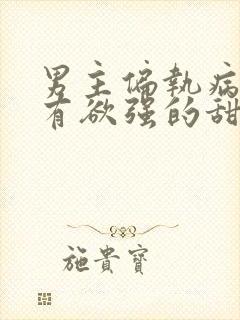 男主偏執病
有欲强的甜
施貴寶